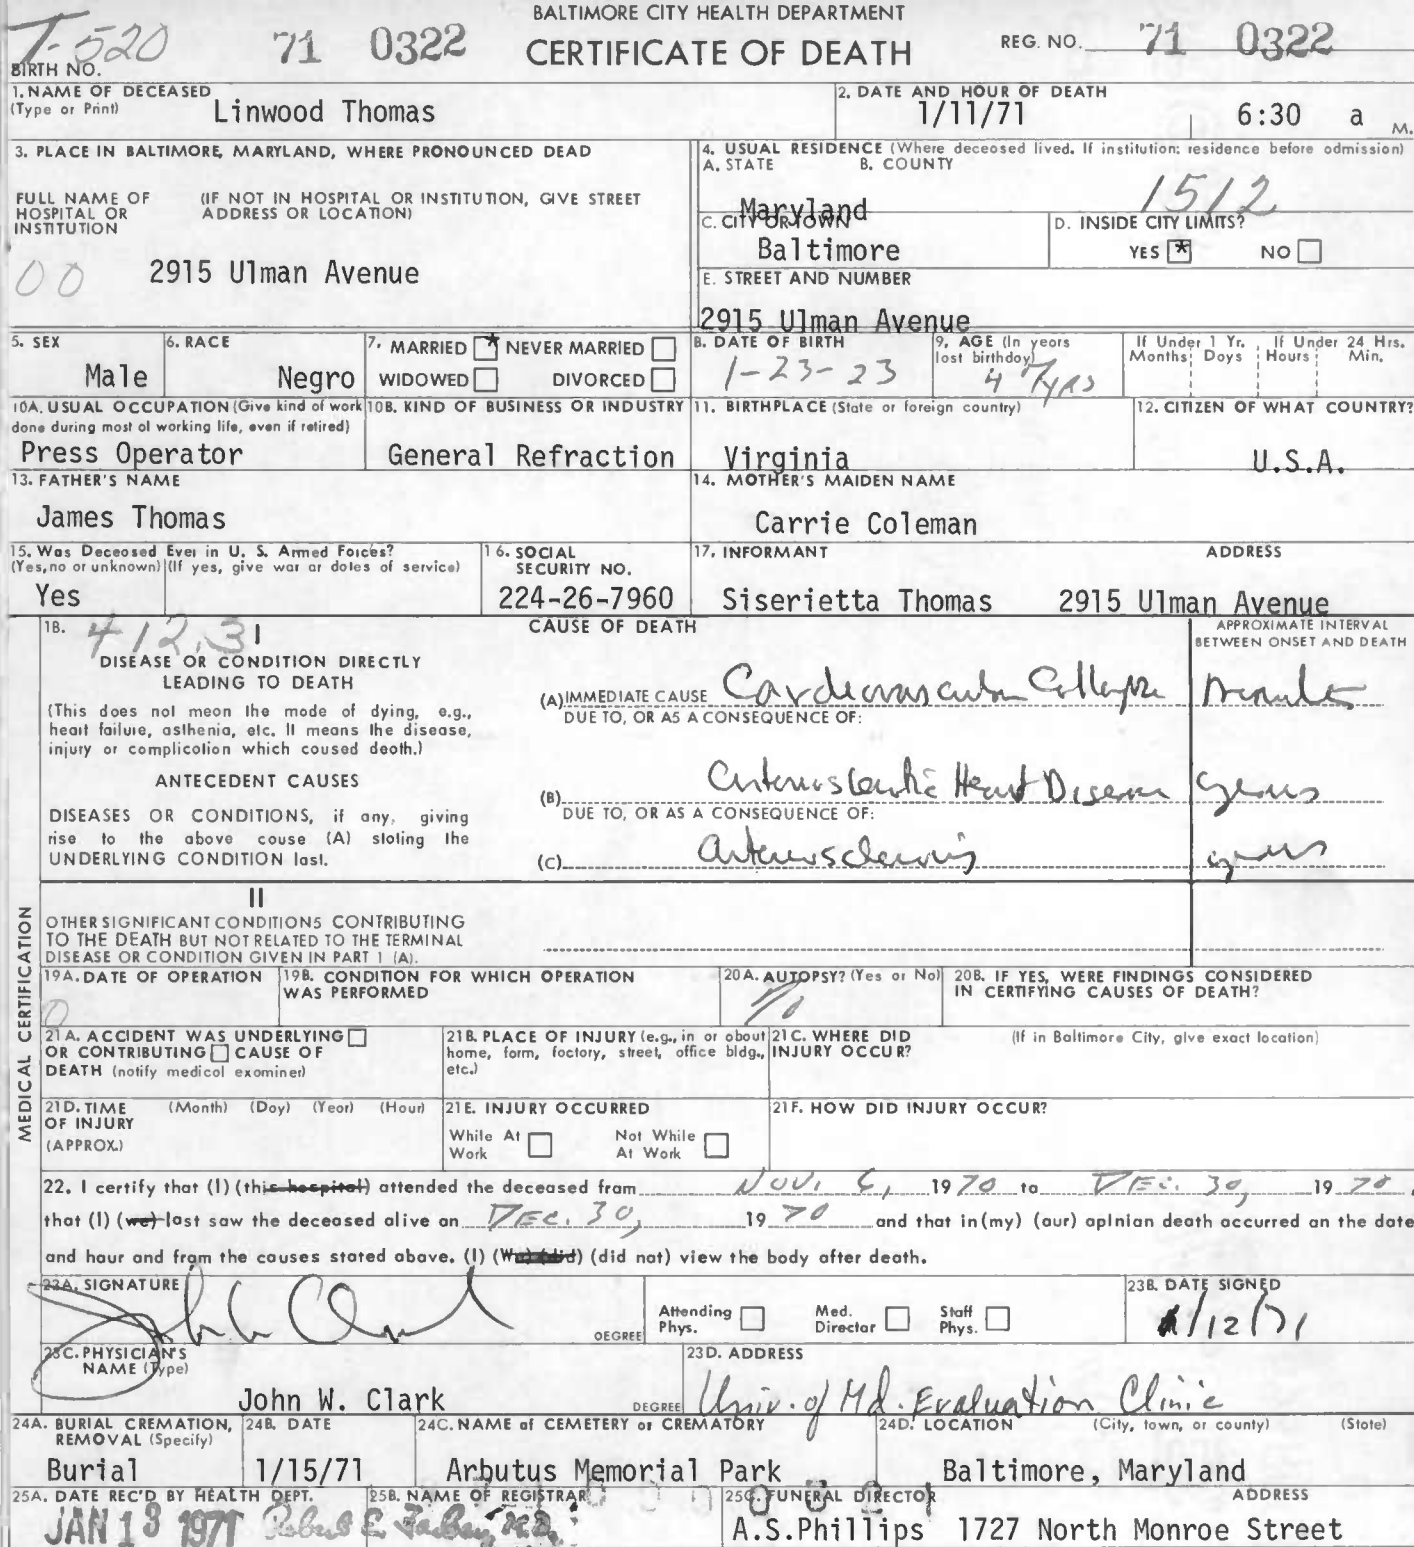 BALTIMORE CITY HEALTH DEPARTMENT
T-520 71 0322 CERTIFICATE OF DEATH REG. NO. 71 0322
BIRTH NO.
1. NAME OF DECEASED (Type or Print) Linwood Thomas
2. DATE AND HOUR OF DEATH 1/11/71 6:30 a M.
3. PLACE IN BALTIMORE, MARYLAND, WHERE PRONOUNCED DEAD
FULL NAME OF HOSPITAL OR INSTITUTION (IF NOT IN HOSPITAL OR INSTITUTION, GIVE STREET ADDRESS OR LOCATION)
00 2915 Ulman Avenue
4. USUAL RESIDENCE (Where deceased lived. If institution: residence before admission)
A. STATE B. COUNTY
Maryland 1512
C. CITY OR TOWN Baltimore
D. INSIDE CITY LIMITS? YES * NO
E. STREET AND NUMBER
2915 Ulman Avenue
5. SEX Male
6. RACE Negro
7. MARRIED * NEVER MARRIED
WIDOWED DIVORCED
8. DATE OF BIRTH 1-23-23
9. AGE (In years last birthday) 47yrs
If Under 1 Yr. Months Days If Under 24 Hrs. Hours Min.
10A. USUAL OCCUPATION (Give kind of work done during most of working life, even if retired)
Press Operator
10B. KIND OF BUSINESS OR INDUSTRY
General Refraction
11. BIRTHPLACE (State or foreign country)
Virginia
12. CITIZEN OF WHAT COUNTRY?
U.S.A.
13. FATHER'S NAME
James Thomas
14. MOTHER'S MAIDEN NAME
Carrie Coleman
15. Was Deceased Ever in U. S. Armed Forces?
(Yes, no or unknown) (If yes, give war or dates of service)
Yes
16. SOCIAL SECURITY NO.
224-26-7960
17. INFORMANT ADDRESS
Siserietta Thomas 2915 Ulman Avenue
MEDICAL CERTIFICATION
18. 412.3 I CAUSE OF DEATH
APPROXIMATE INTERVAL BETWEEN ONSET AND DEATH
DISEASE OR CONDITION DIRECTLY LEADING TO DEATH
(This does not mean the mode of dying, e.g., heart failure, asthenia, etc. It means the disease, injury or complication which caused death.)
(A) IMMEDIATE CAUSE Cardiovascular Collapse minutes
DUE TO, OR AS A CONSEQUENCE OF:
ANTECEDENT CAUSES
DISEASES OR CONDITIONS, if any, giving rise to the above cause (A) stating the UNDERLYING CONDITION last.
(B) Arteriosclerotic Heart Disease years
DUE TO, OR AS A CONSEQUENCE OF:
(C) arteriosclerosis years
II
OTHER SIGNIFICANT CONDITIONS CONTRIBUTING TO THE DEATH BUT NOT RELATED TO THE TERMINAL DISEASE OR CONDITION GIVEN IN PART 1 (A).
19A. DATE OF OPERATION 0
19B. CONDITION FOR WHICH OPERATION WAS PERFORMED
20A. AUTOPSY? (Yes or No) No
20B. IF YES, WERE FINDINGS CONSIDERED IN CERTIFYING CAUSES OF DEATH?
21A. ACCIDENT WAS UNDERLYING OR CONTRIBUTING CAUSE OF DEATH (notify medical examiner)
21B. PLACE OF INJURY (e.g., in or about home, farm, factory, street, office bldg., etc.)
21C. WHERE DID INJURY OCCUR? (If in Baltimore City, give exact location)
21D. TIME OF INJURY (APPROX.) (Month) (Day) (Year) (Hour)
21E. INJURY OCCURRED
While At Work Not While At Work
21F. HOW DID INJURY OCCUR?
22. I certify that (I) (this hospital) attended the deceased from Nov. 6, 1970 to Dec. 30, 1970,
that (I) (we) last saw the deceased alive on Dec. 30, 1970 and that in (my) (our) opinion death occurred on the date
and hour and from the causes stated above. (I) (We) (did) (did not) view the body after death.
23A. SIGNATURE John W. Clark DEGREE
Attending Phys. Med. Director Staff Phys.
23B. DATE SIGNED 1/12/71
23C. PHYSICIAN'S NAME (Type)
John W. Clark DEGREE
23D. ADDRESS
Univ. of Md. Evaluation Clinic
24A. BURIAL CREMATION, REMOVAL (Specify)
Burial
24B. DATE
1/15/71
24C. NAME of CEMETERY or CREMATORY
Arbutus Memorial Park
24D. LOCATION (City, town, or county) (State)
Baltimore, Maryland
25A. DATE REC'D BY HEALTH DEPT.
JAN 13 1971
25B. NAME OF REGISTRAR
Robert E. Farber, M.D.
25C. FUNERAL DIRECTOR ADDRESS
A.S.Phillips 1727 North Monroe Street